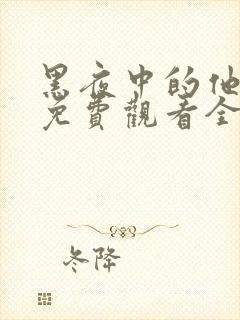 黑夜中的他
免費觀看全
冬降